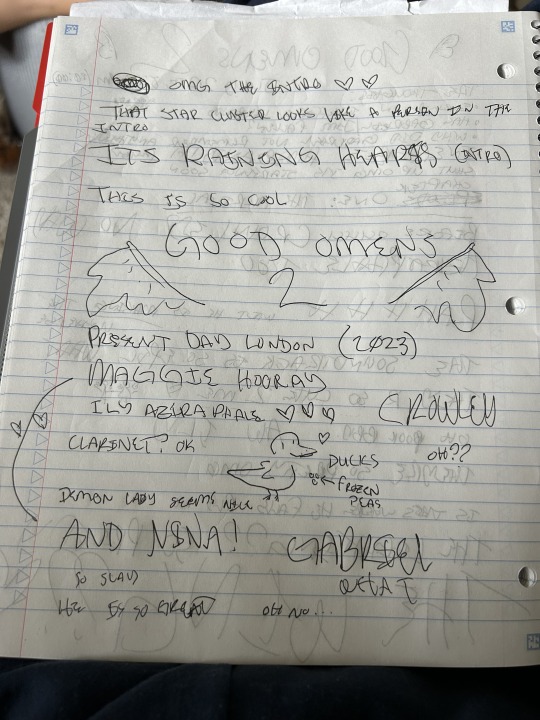 OMG THE INTRO ♡ ♡
THAT STAR CLUSTER LOOKS LIKE A PERSON IN THE
INTRO
ITS RAINING HEARTS (INTRO)
THIS IS SO COOL
GOOD OMENS
2
PRESENT DAY LONDON (2023)
MAGGIE HOORAY
ILY AZIRAPHALE ♡ ♡ ♡
CROWLEY
CLARINET? OK
DUCKS
OH??
← FROZEN
PEAS
DEMON LADY SEEMS NICE
AND NINA!
GABRIEL
SO SLAY
WHAT
HE IS SO
OH NO...